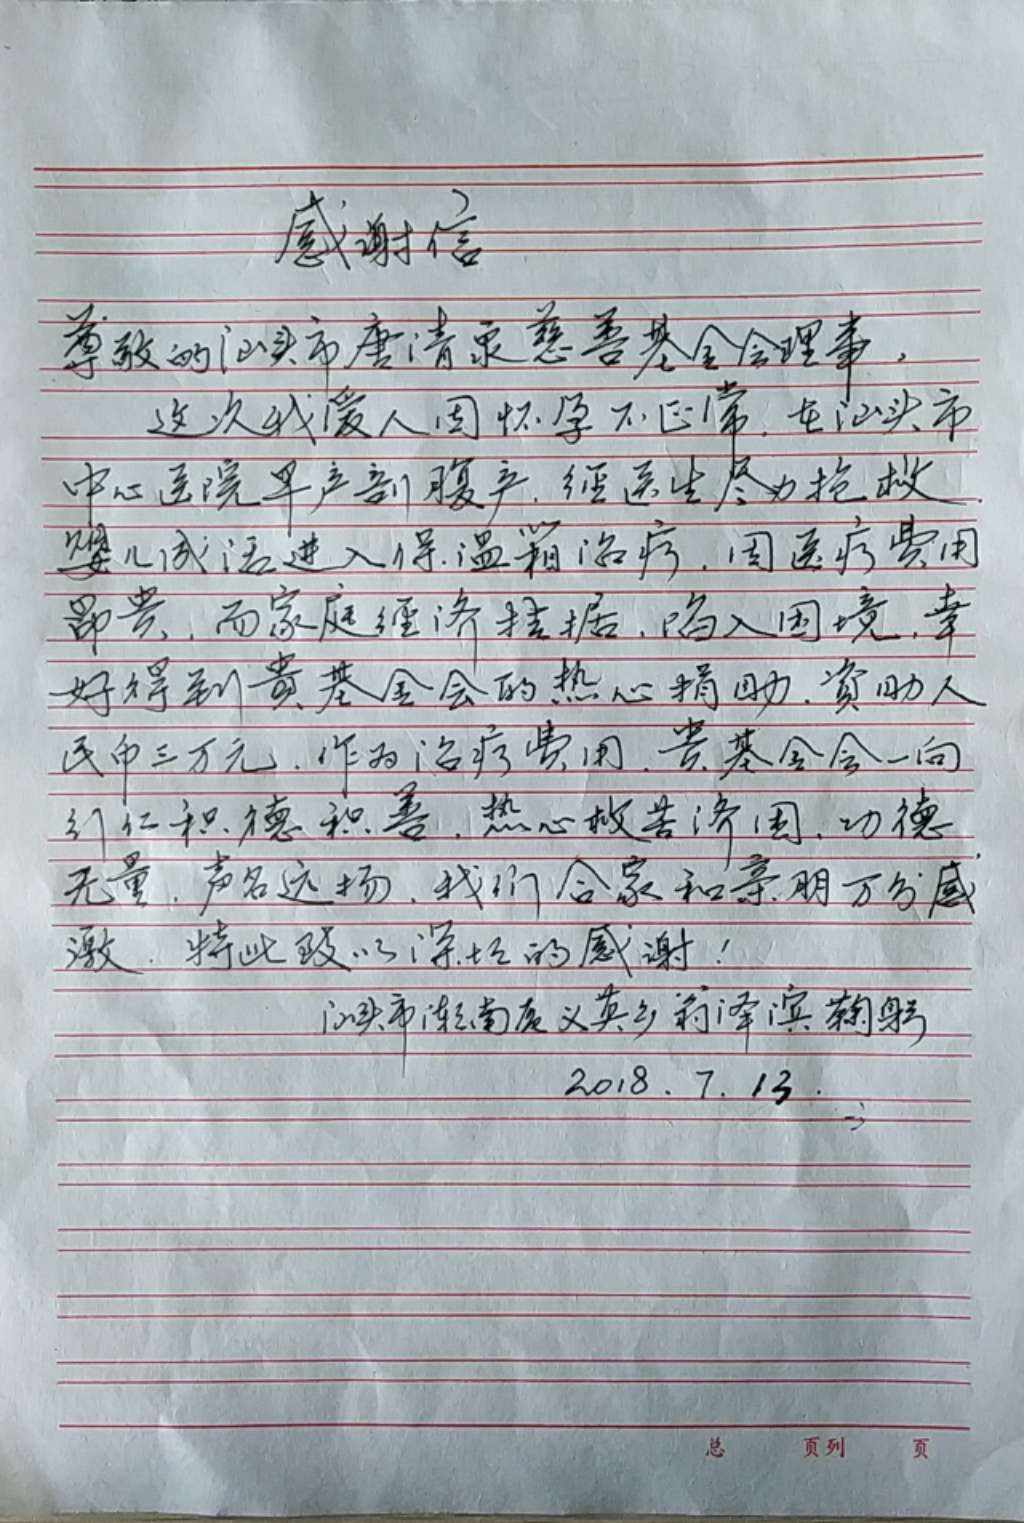 感谢信
尊敬的汕头市唐清泉慈善基金会理事,
这次我爱人因怀孕不正常,在汕头市
中心医院早产剖腹产,经医生尽力抢救,
婴儿成活进入保温箱治疗,因医疗费用
昂贵,而家庭经济拮据,陷入困境,幸
好得到贵基金会的热心捐助,资助人
民币三万元,作为治疗费用,贵基金会一向
引仁积德积善,热心救苦济困,功德
无量,声名远扬,我们合家和亲朋万分感
激,特此致以深切的感谢!
汕头市潮南区义英乡 泽滨鞠躬
2018.7.13.
总 页列 页